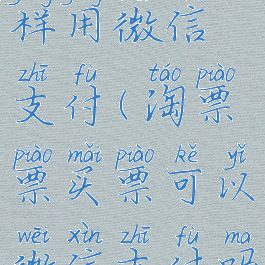 样用微信
zhī fù táo piào
支付(淘票
piào mǎi piào kě yǐ
票买票可以
wēi xìn zhī fù ma
微信支付吗